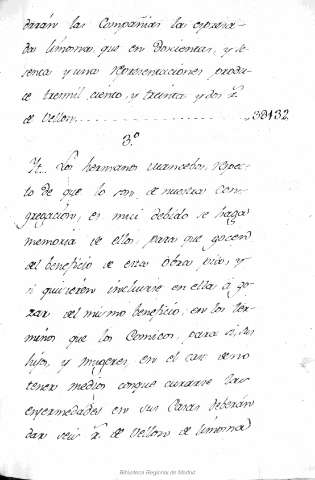 darán las Compañías la expresa-
da limosna, que en Doscientas, y se-
senta y una representaciones, produ-
ce tresmil, ciento, y treinta y dos r.^s
de Vellon, 3132
3.º
Yt... Los hermanos mancebos, respec-
to de que lo son de nuestra Con-
gregación, es mui debido se haga
memoria de ellos, para que gocen
del beneficio de esta obra pía, y
si quisieren incluirse en ella a go-
zar del mismo beneficio, en los ter-
minos que los Comicos, para sí, sus
hijos, y mugeres, en el caso de no
tener medios conque curarse las
enfermedades en sus Casas deberán
dar seis r.^s de Vellon de limosna
Biblioteca Regional de Madrid